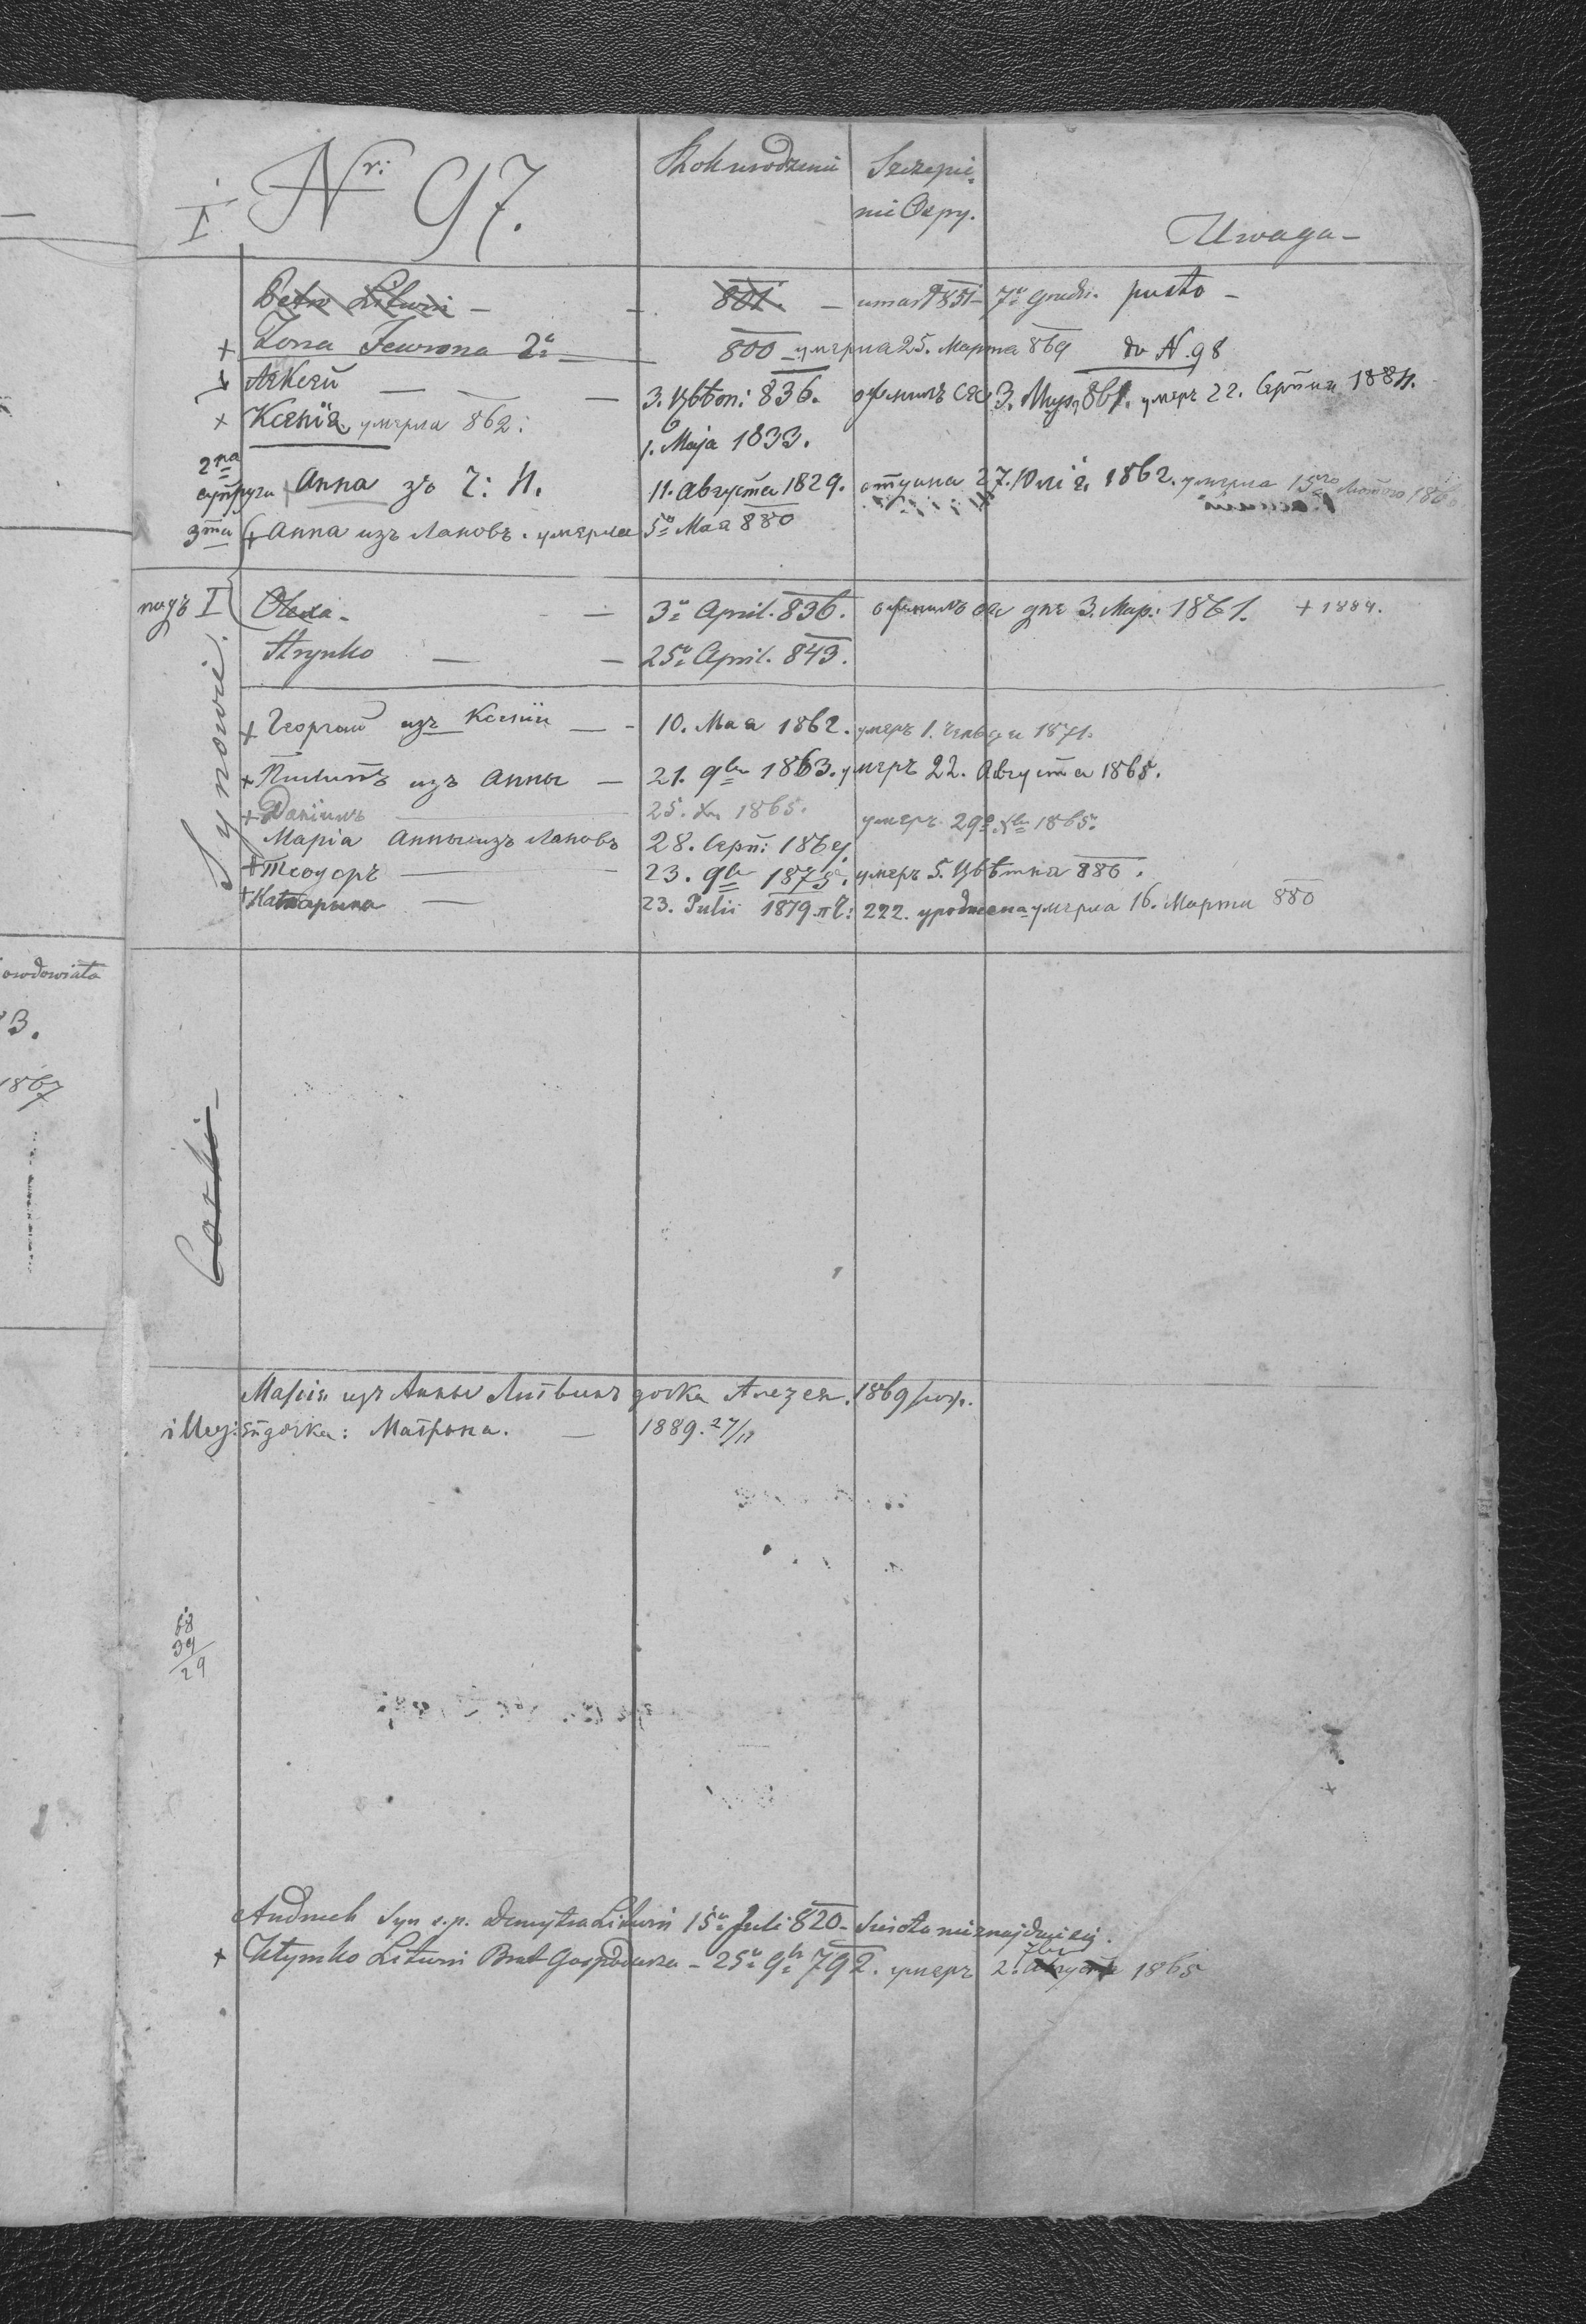 owdowiała
3.
1867
I Nr: 97. Rok urodzenia Szczepie-
nie Ospy. Uwaga-
Petro Litwin - 801. - umarł 851 - 7ª grudn. pusto -
+ Żona Fewrona 2ª - 800 - умерла 25. Марта 869 do N. 98
Алкс́ей - 3. Цвѣт: 836. оженилъ ся 3. Мар. 861. умеръ 22. Серпня 1884.
+ Ксенія умерла 862: 1. Maja 1833.
2га супруга Анна зъ Ч: Н. 11. Августа 1829. 27. Юлія 1862. умерла 15го Лютого 186
3тя + Анна изъ Лановъ. умерла 5ª Мая 880
подъ I Olexa - 3ª April. 836. оженилъ ся дня 3. Мар: 1861. + 1884.
Hrynko - 25ª April. 843.
Synowie.
+ Георгій изъ Ксеніи - 10. Мая 1862. умеръ 1. 1871.
+ Пилипъ изъ Анны - 21. 9br 1863. умеръ 22. Августа 1865.
+ Даніилъ 25. Xbr 1865. умеръ 29º Xbr 1865.
Марія Анны изъ Лановъ 28. Серп: 1869.
+ Теодоръ - 23. 9br 1875. умеръ 5. Цвѣтня 886.
+ Катарина - 23. Julii 1879 пѣ: 222. уроджена умерла 16. Марта 880
Corki -
Марія изъ Анны Литвинъ дочка Алезея. 1869 рож.
illeg: дочка: Матрона. - 1889. 27/11
68
39
29
Andruch Syn ś.p. Demytra Litwin 15ª Juli 820 - Sierota nieznajduie się.
+ Tymko Litwin Brat Gospodarza - 25ª 9br 792. умеръ 2. Августа 7br 1865